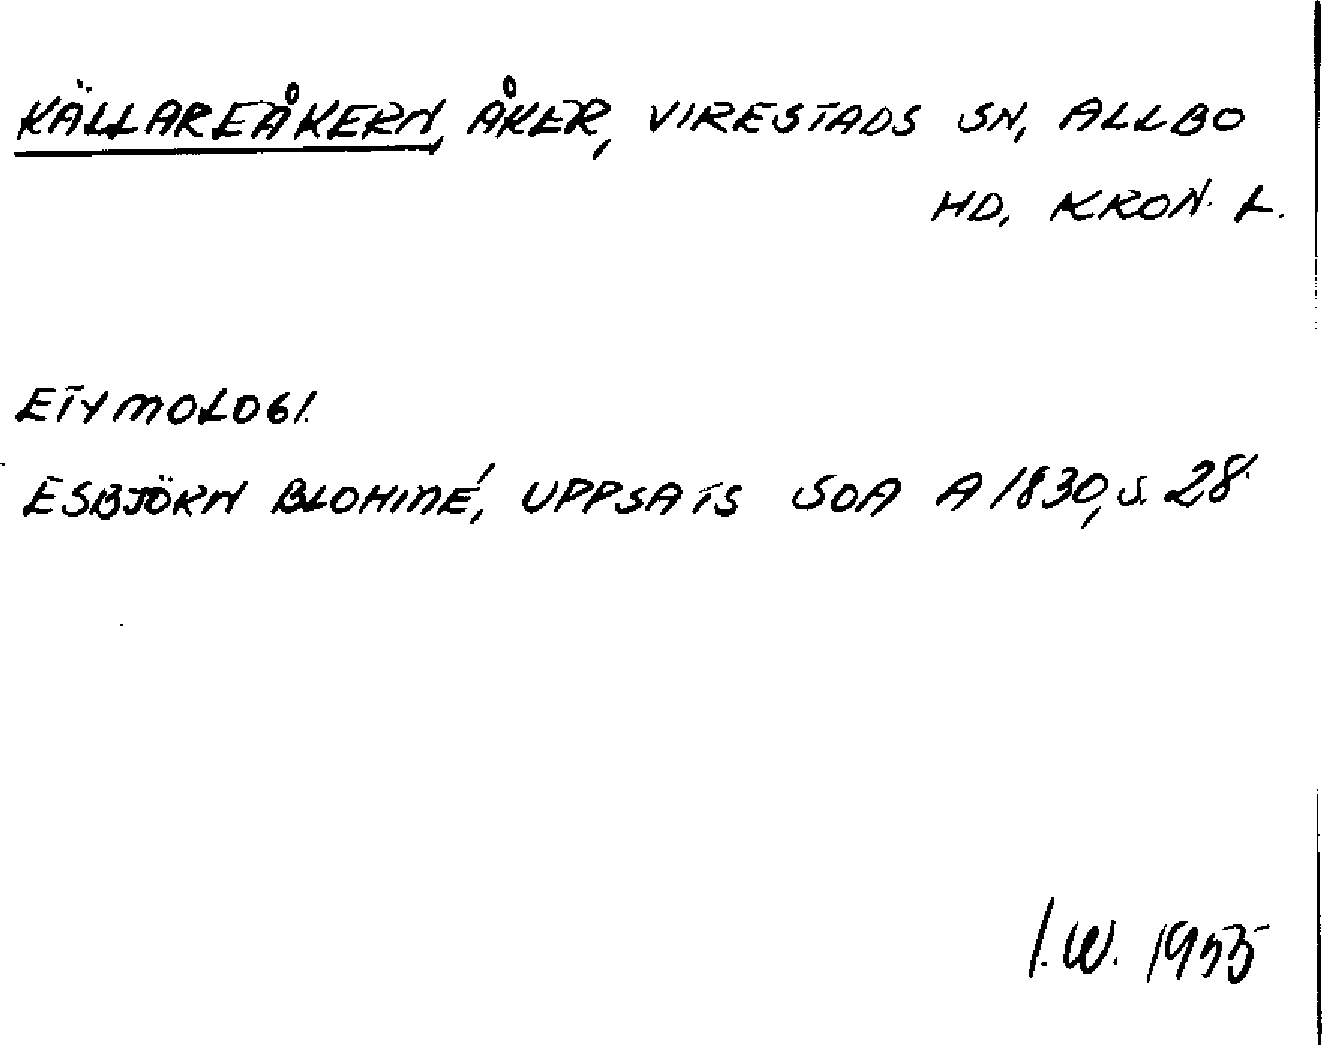 KÄLLAREÅKERN, ÅKER, VIRESTADS SN, ALLBO
HD, KRON. L.
ETYMOLOGI.
ESBJÖRN BLOHMÉ, UPPSATS SOA A 1830, S. 28.
I.W. 1955